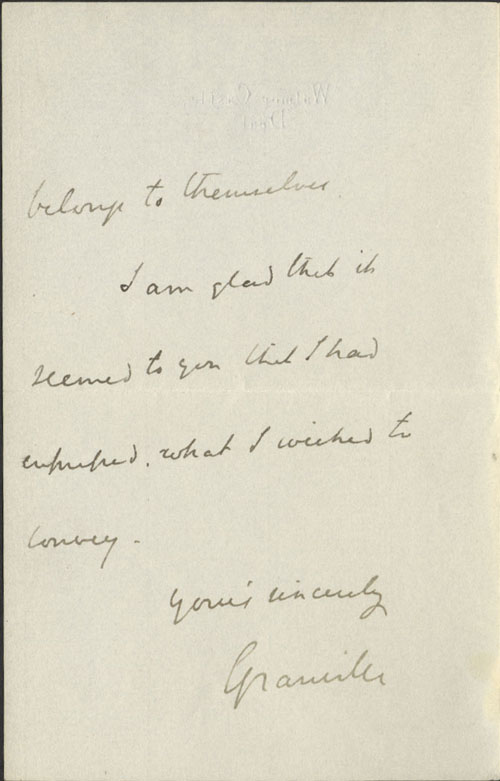 Walmer Castle
Deal
belongs to themselves.
I am glad that it
seemed to you that I had
expressed, what I wished to
convey.
Yours sincerely
Granville